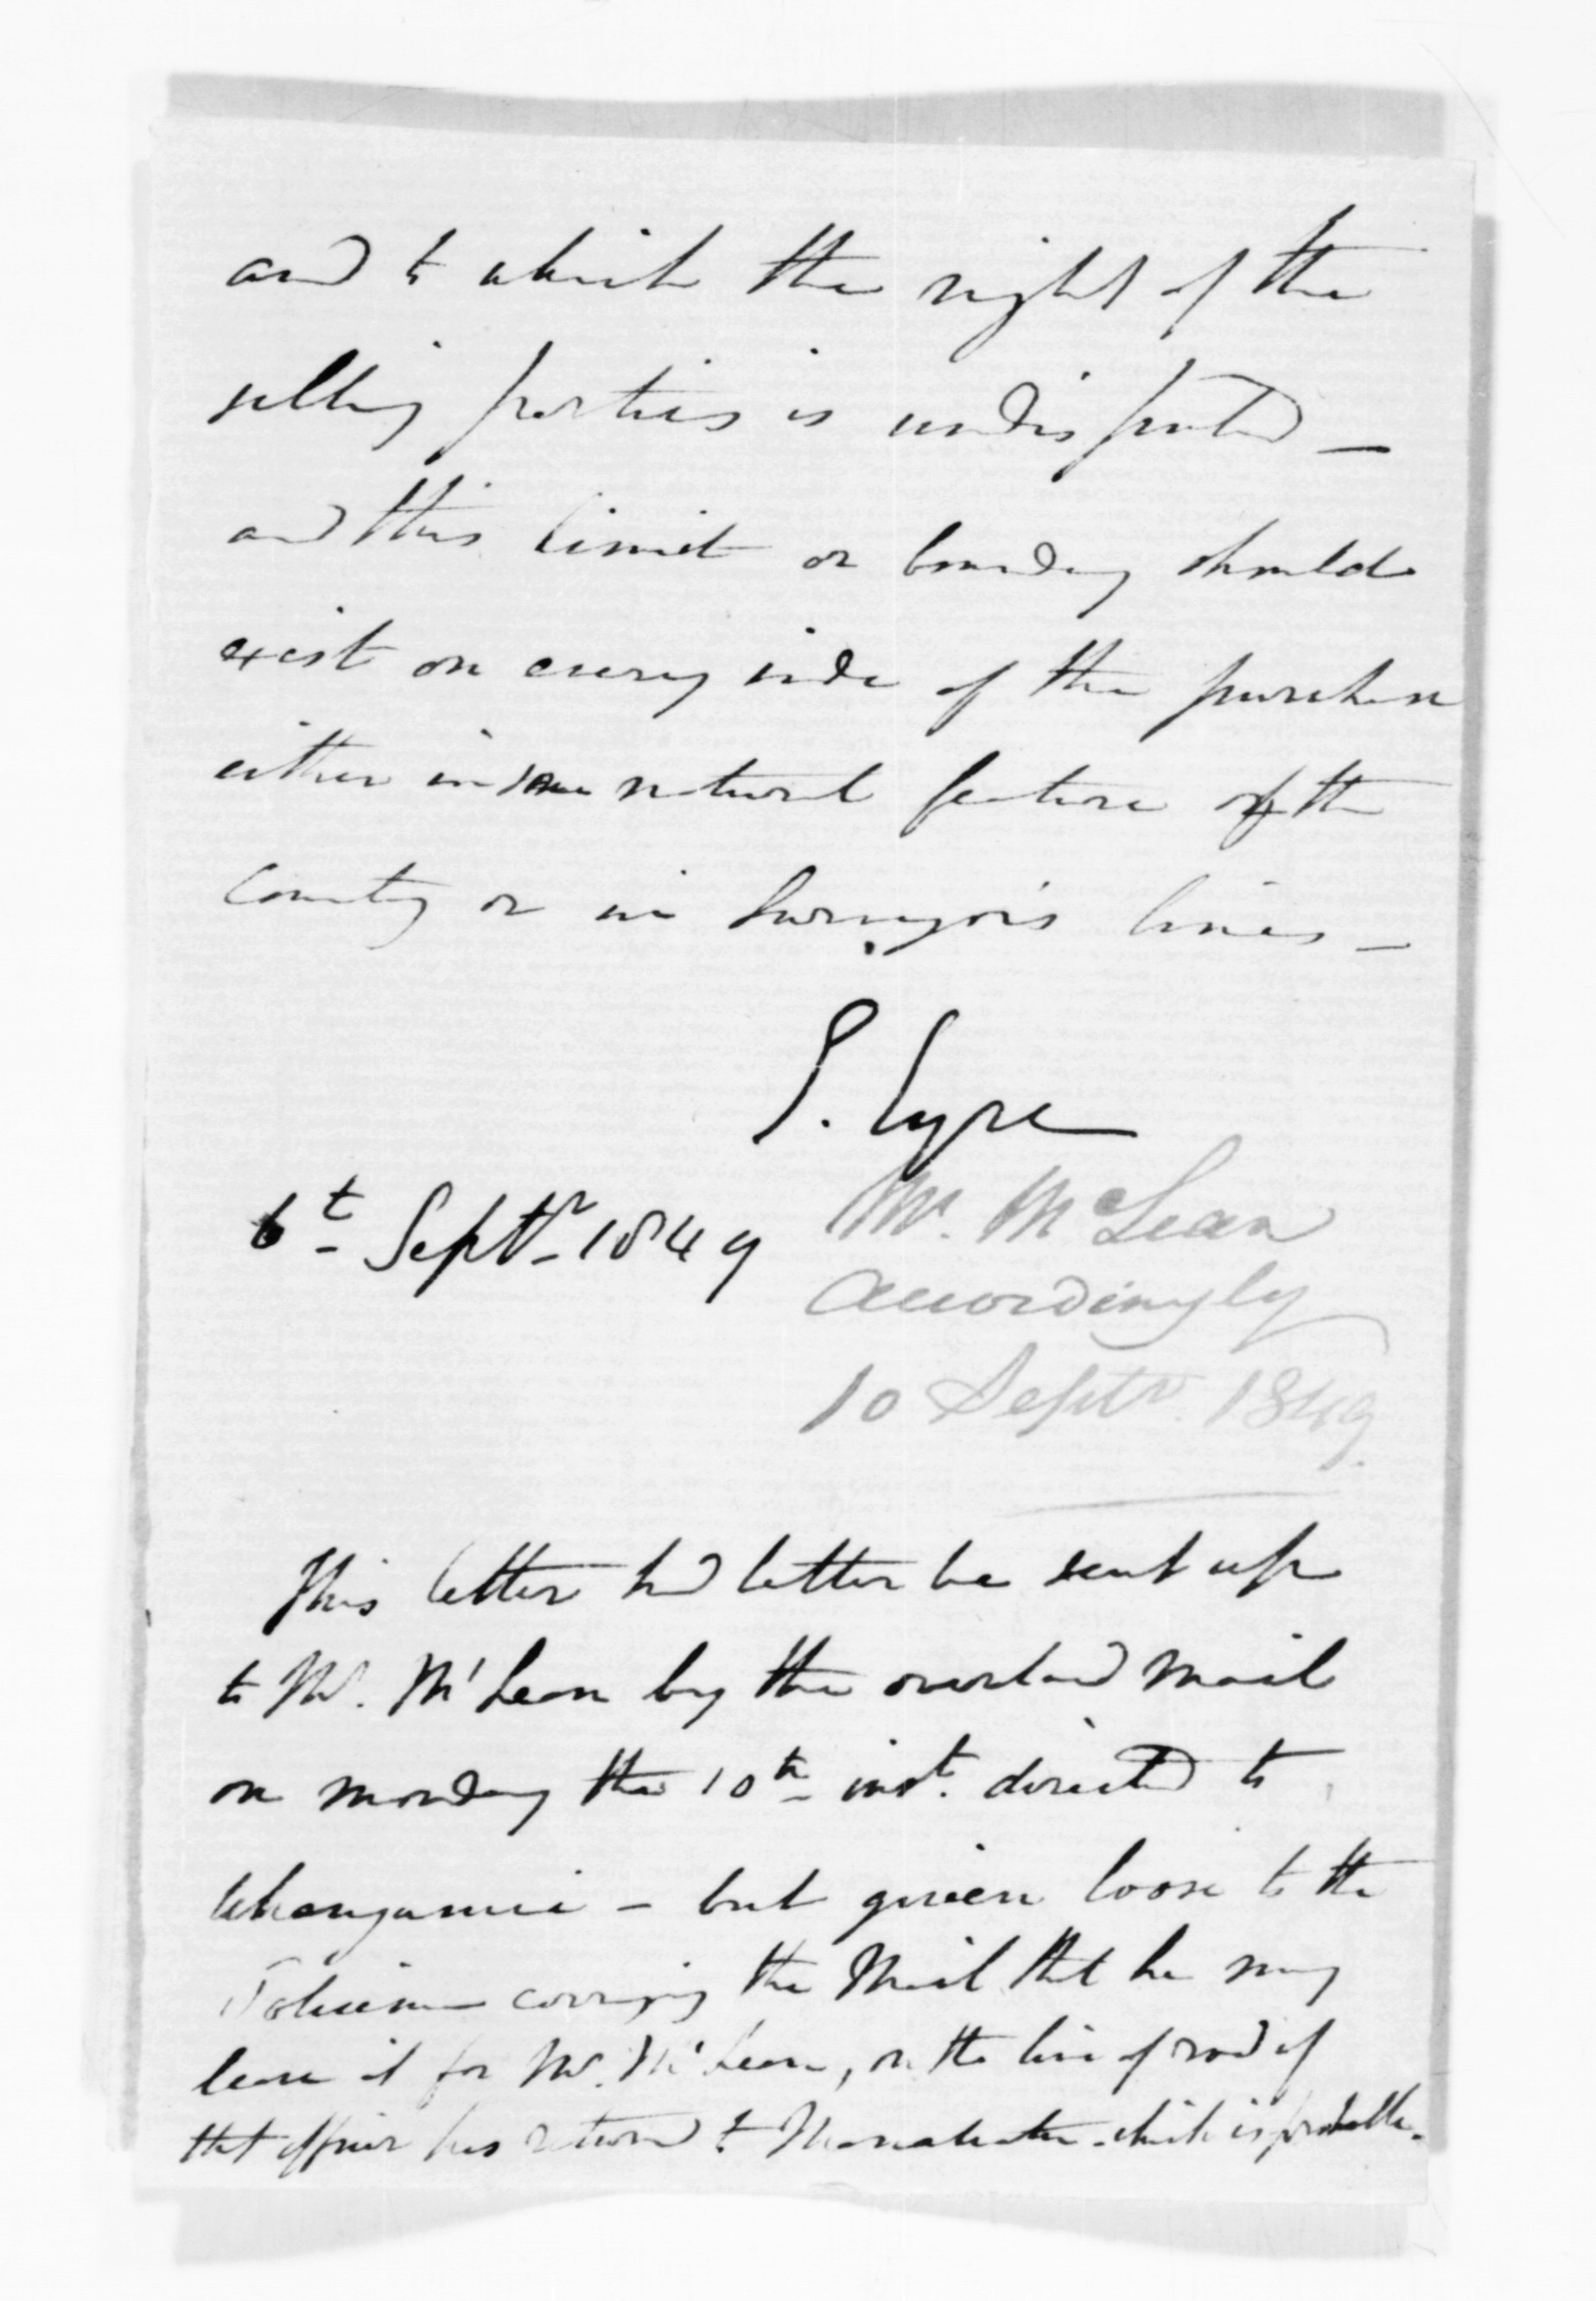 and to which the right of the
selling parties is undisputed _
and this limit or boundary should
exist on every side of the purchase
either in some natural feature of the
Country or in Surveyor's lines _
E. Eyre
6t Septr 1849
Mr. McLean
accordingly
10 Septr. 1849.
This letter had better be sent up
to Mr. McLean by the overland Mail
on Monday the 10th inst. directed to
Whanganui - but given loose to the
Policeman carrying the Mail that he may
leave it for Mr. McLean, on the line of road if
that officer has returned to Manawatu - which is probable.